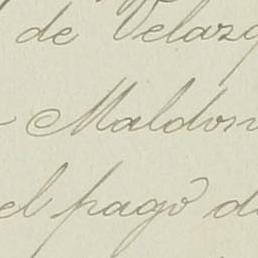 de Velazq
Maldon
el pago de